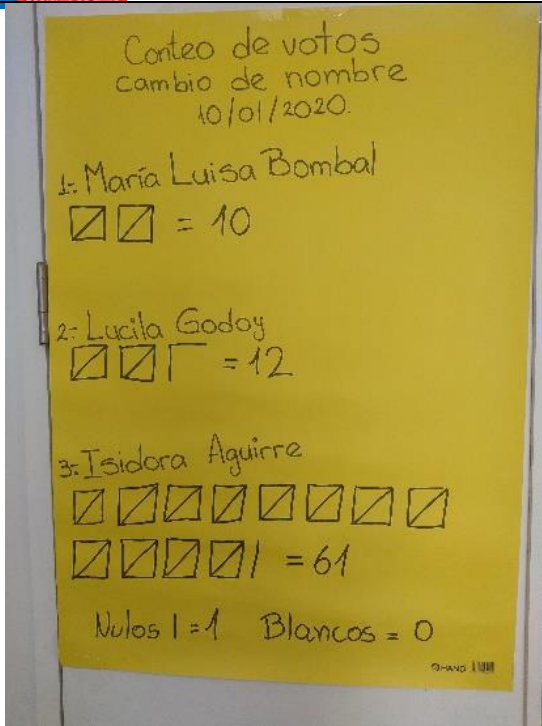 Conteo de votos
cambio de nombre
10/01/2020.
1.- María Luisa Bombal
= 10
2.- Lucila Godoy
= 12
3.- Isidora Aguirre
= 61
Nulos | = 1 Blancos = 0